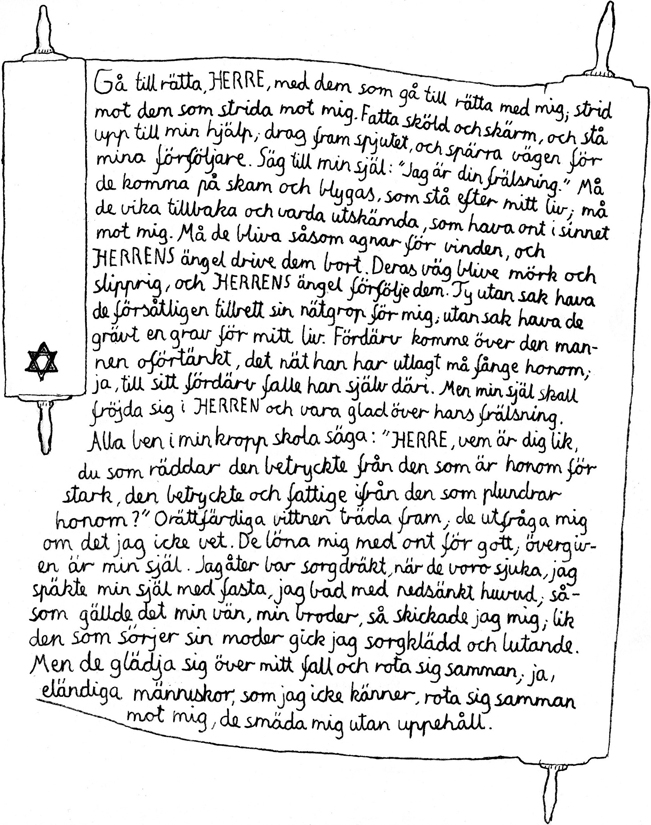 Gå till rätta, HERRE, med dem som gå till rätta med mig; strid
mot dem som strida mot mig. Fatta sköld och skärm, och stå
upp till min hjälp; drag fram spjutet, och spärra vägen för
mina förföljare. Säg till min själ: "Jag är din frälsning." Må
de komma på skam och blygas, som stå efter mitt liv; må
de vika tillbaka och varda utskämda, som hava ont i sinnet
mot mig. Må de bliva såsom agnar för vinden, och
HERRENS ängel drive dem bort. Deras väg blive mörk och
slipprig, och HERRENS ängel förfölje dem. Ty utan sak hava
de försåtligen tillrett sin nätgrop för mig, utan sak hava de
grävt en grav för mitt liv. Fördärv komme över den man-
nen oförtänkt, det nät han har utlagt må fånge honom;
ja, till sitt fördärv falle han själv däri. Men min själ skall
fröjda sig i HERREN och vara glad över hans frälsning.
Alla ben i min kropp skola säga: "HERRE, vem är dig lik,
du som räddar den betryckte från den som är honom för
stark, den betryckte och fattige ifrån den som plundrar
honom?" Orättfärdiga vittnen träda fram; de utfråga mig
om det jag icke vet. De löna mig med ont för gott; övergiv-
en är min själ. Jag åter bar sorgdräkt, när de voro sjuka, jag
späkte min själ med fasta, jag bad med nedsänkt huvud; så-
som gällde det min vän, min broder, så skickade jag mig; lik
den som sörjer sin moder gick jag sorgklädd och lutande.
Men de glädja sig över mitt fall och rota sig samman; ja,
eländiga människor, som jag icke känner, rota sig samman
mot mig, de smäda mig utan uppehåll.